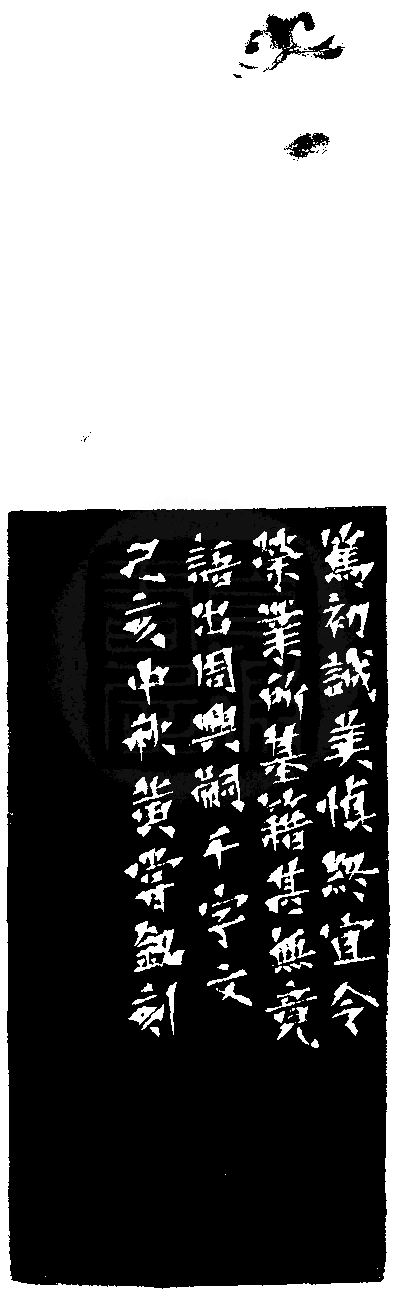 篤初誠美慎終宜令
榮業所基籍甚無竟
語出周興嗣千字文
己亥中秋黃嘗銘刻